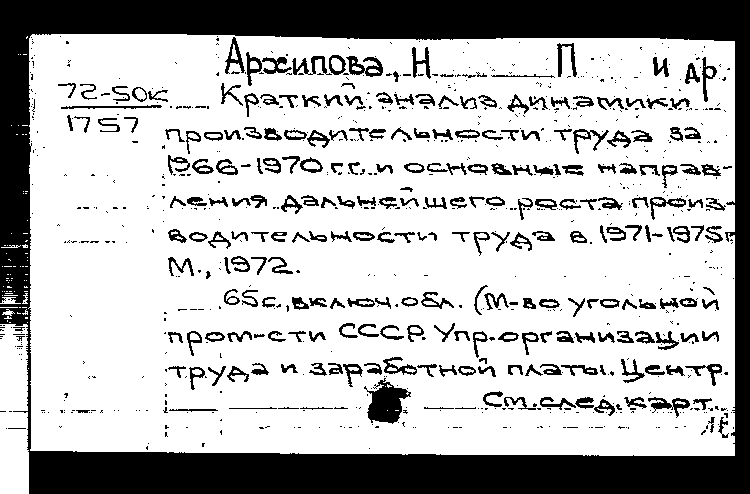 Архипова, Н П и др.
72-50к
1757
Краткий анализ динамики
производительности труда за
1966-1970 г.г. и основные направ-
ления дальнейшего роста произ-
водительности труда в 1971-1975г
М., 1972.
65с., включ. обл. (М-во угольной
пром-сти СССР. Упр. организации
труда и заработной платы. Центр.
См. след. карт.